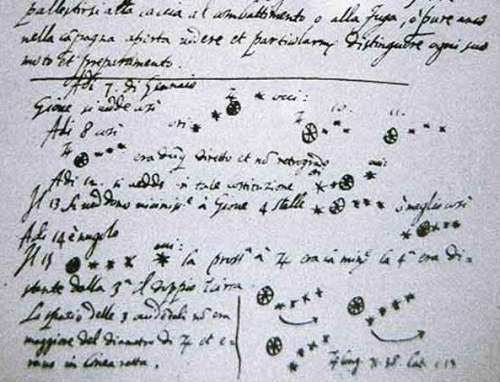 pallestirsi alla caccia al combattimento o alla fuga, o pure anco
nella capagna aperta vedere et particolarmᵉ distinguere ogni suo
moto et preparamento.
Adi 7. di Gennaio
Gione si vedde così occi:
Adi 8 così ori: 10. 11.
♃ era dūq̄ diretto et nō retrogrado
Adi 12. si vedde in tale costituzione occi:
Il 13 si veddono minimisᵉ à Gioue 4 stelle ò meglio così
Adi 14 è nugolo
Il 15 occi: la prossᵃ à ♃ era la minᵉ la 4ᵃ era di-
stante dalla 3ᵃ il doppio circa
Lo spatio delle 3 occidētali nō era
maggiore del diametro di ♃ et e-
rano in linea retta.
♃ long. 71. 38 Lat. 1. 13